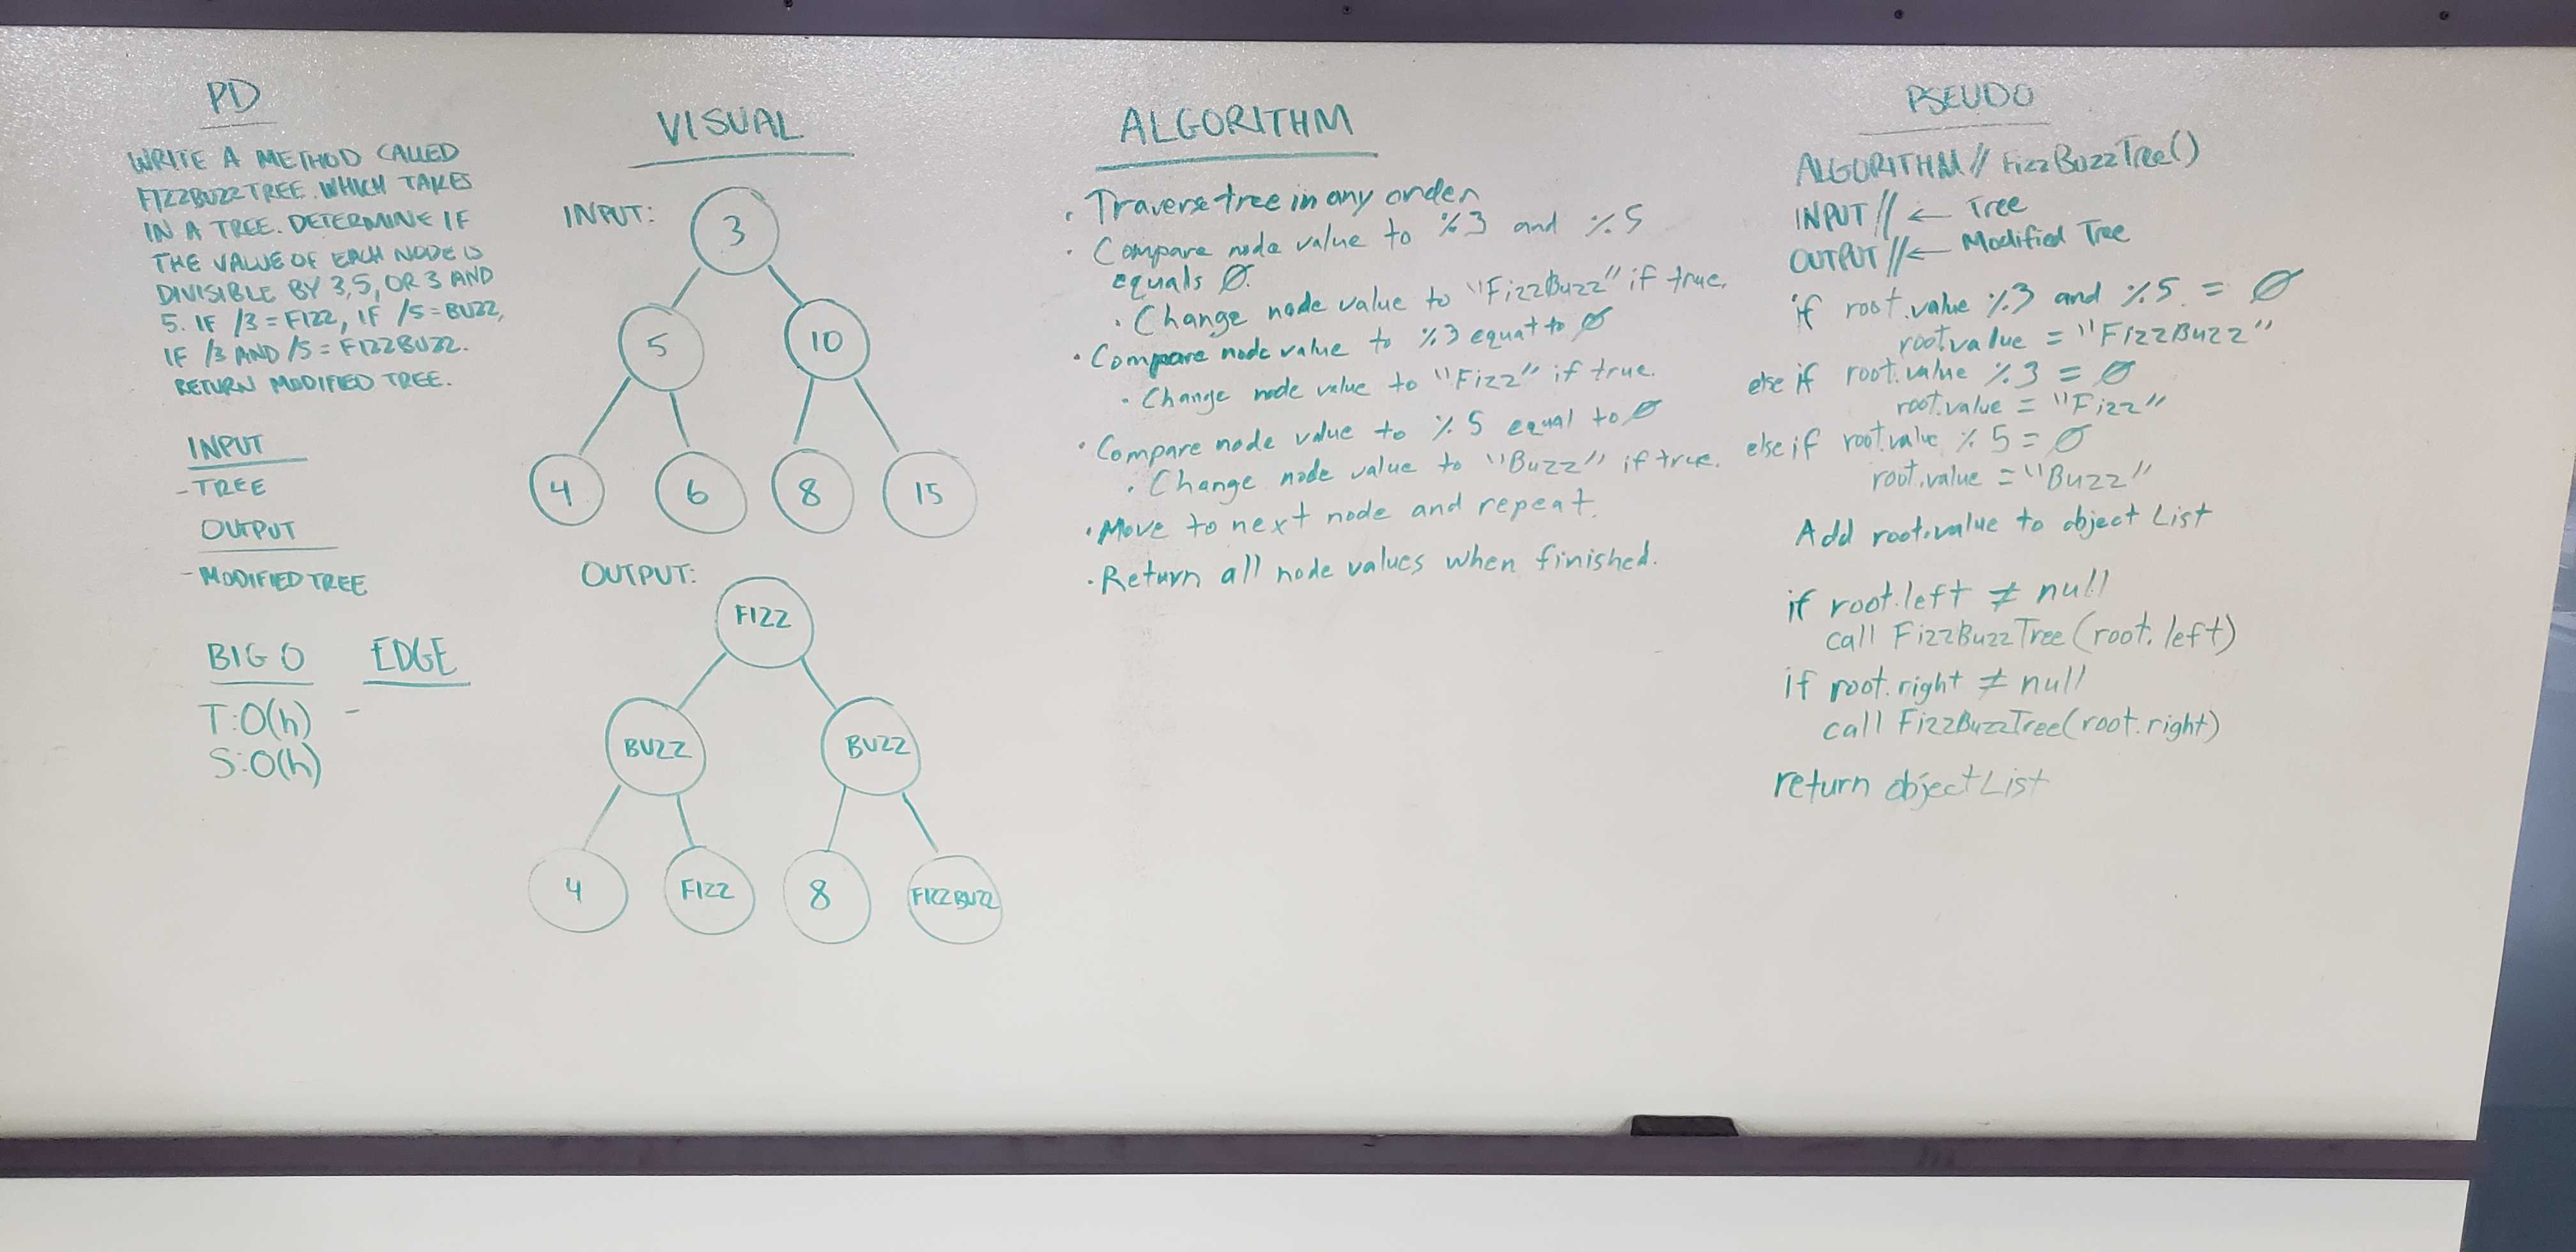 PD
WRITE A METHOD CALLED
FIZZBUZZTREE. WHICH TAKES
IN A TREE. DETERMINE IF
THE VALUE OF EACH NODE IS
DIVISIBLE BY 3, 5, OR 3 AND
5. IF /3 = FIZZ, IF /5 = BUZZ,
IF /3 AND /5 = FIZZBUZZ.
RETURN MODIFIED TREE.
INPUT
- TREE
OUTPUT
- MODIFIED TREE
BIG O
T: O(h)
S: O(h)
EDGE
-
VISUAL
INPUT:
3
5 10
4 6 8 15
OUTPUT:
FIZZ
BUZZ BUZZ
4 FIZZ 8 FIZZBUZZ
ALGORITHM
· Traverse tree in any order
· Compare node value to %3 and %5
equals Ø.
· Change node value to "FizzBuzz" if true.
· Compare node value to %3 equat to Ø
· Change node value to "Fizz" if true.
· Compare node value to %5 equal to Ø
· Change node value to "Buzz" if true.
· Move to next node and repeat.
· Return all node values when finished.
PSEUDO
ALGORITHM // FizzBuzzTree()
INPUT // ← Tree
OUTPUT // ← Modified Tree
if root.value %3 and %5 = Ø
root.value = "FizzBuzz"
else if root.value %3 = Ø
root.value = "Fizz"
else if root.value %5 = Ø
root.value = "Buzz"
Add root.value to object List
if root.left ≠ null
call FizzBuzzTree(root.left)
if root.right ≠ null
call FizzBuzzTree(root.right)
return objectList